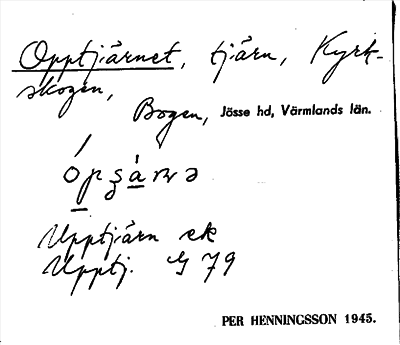 Opptjärnet, tjärn, Kyrk-
skogen,
Bogen, Jösse hd, Värmlands län.
Upptjärn ek
Upptj. G 79
PER HENNINGSSON 1945.